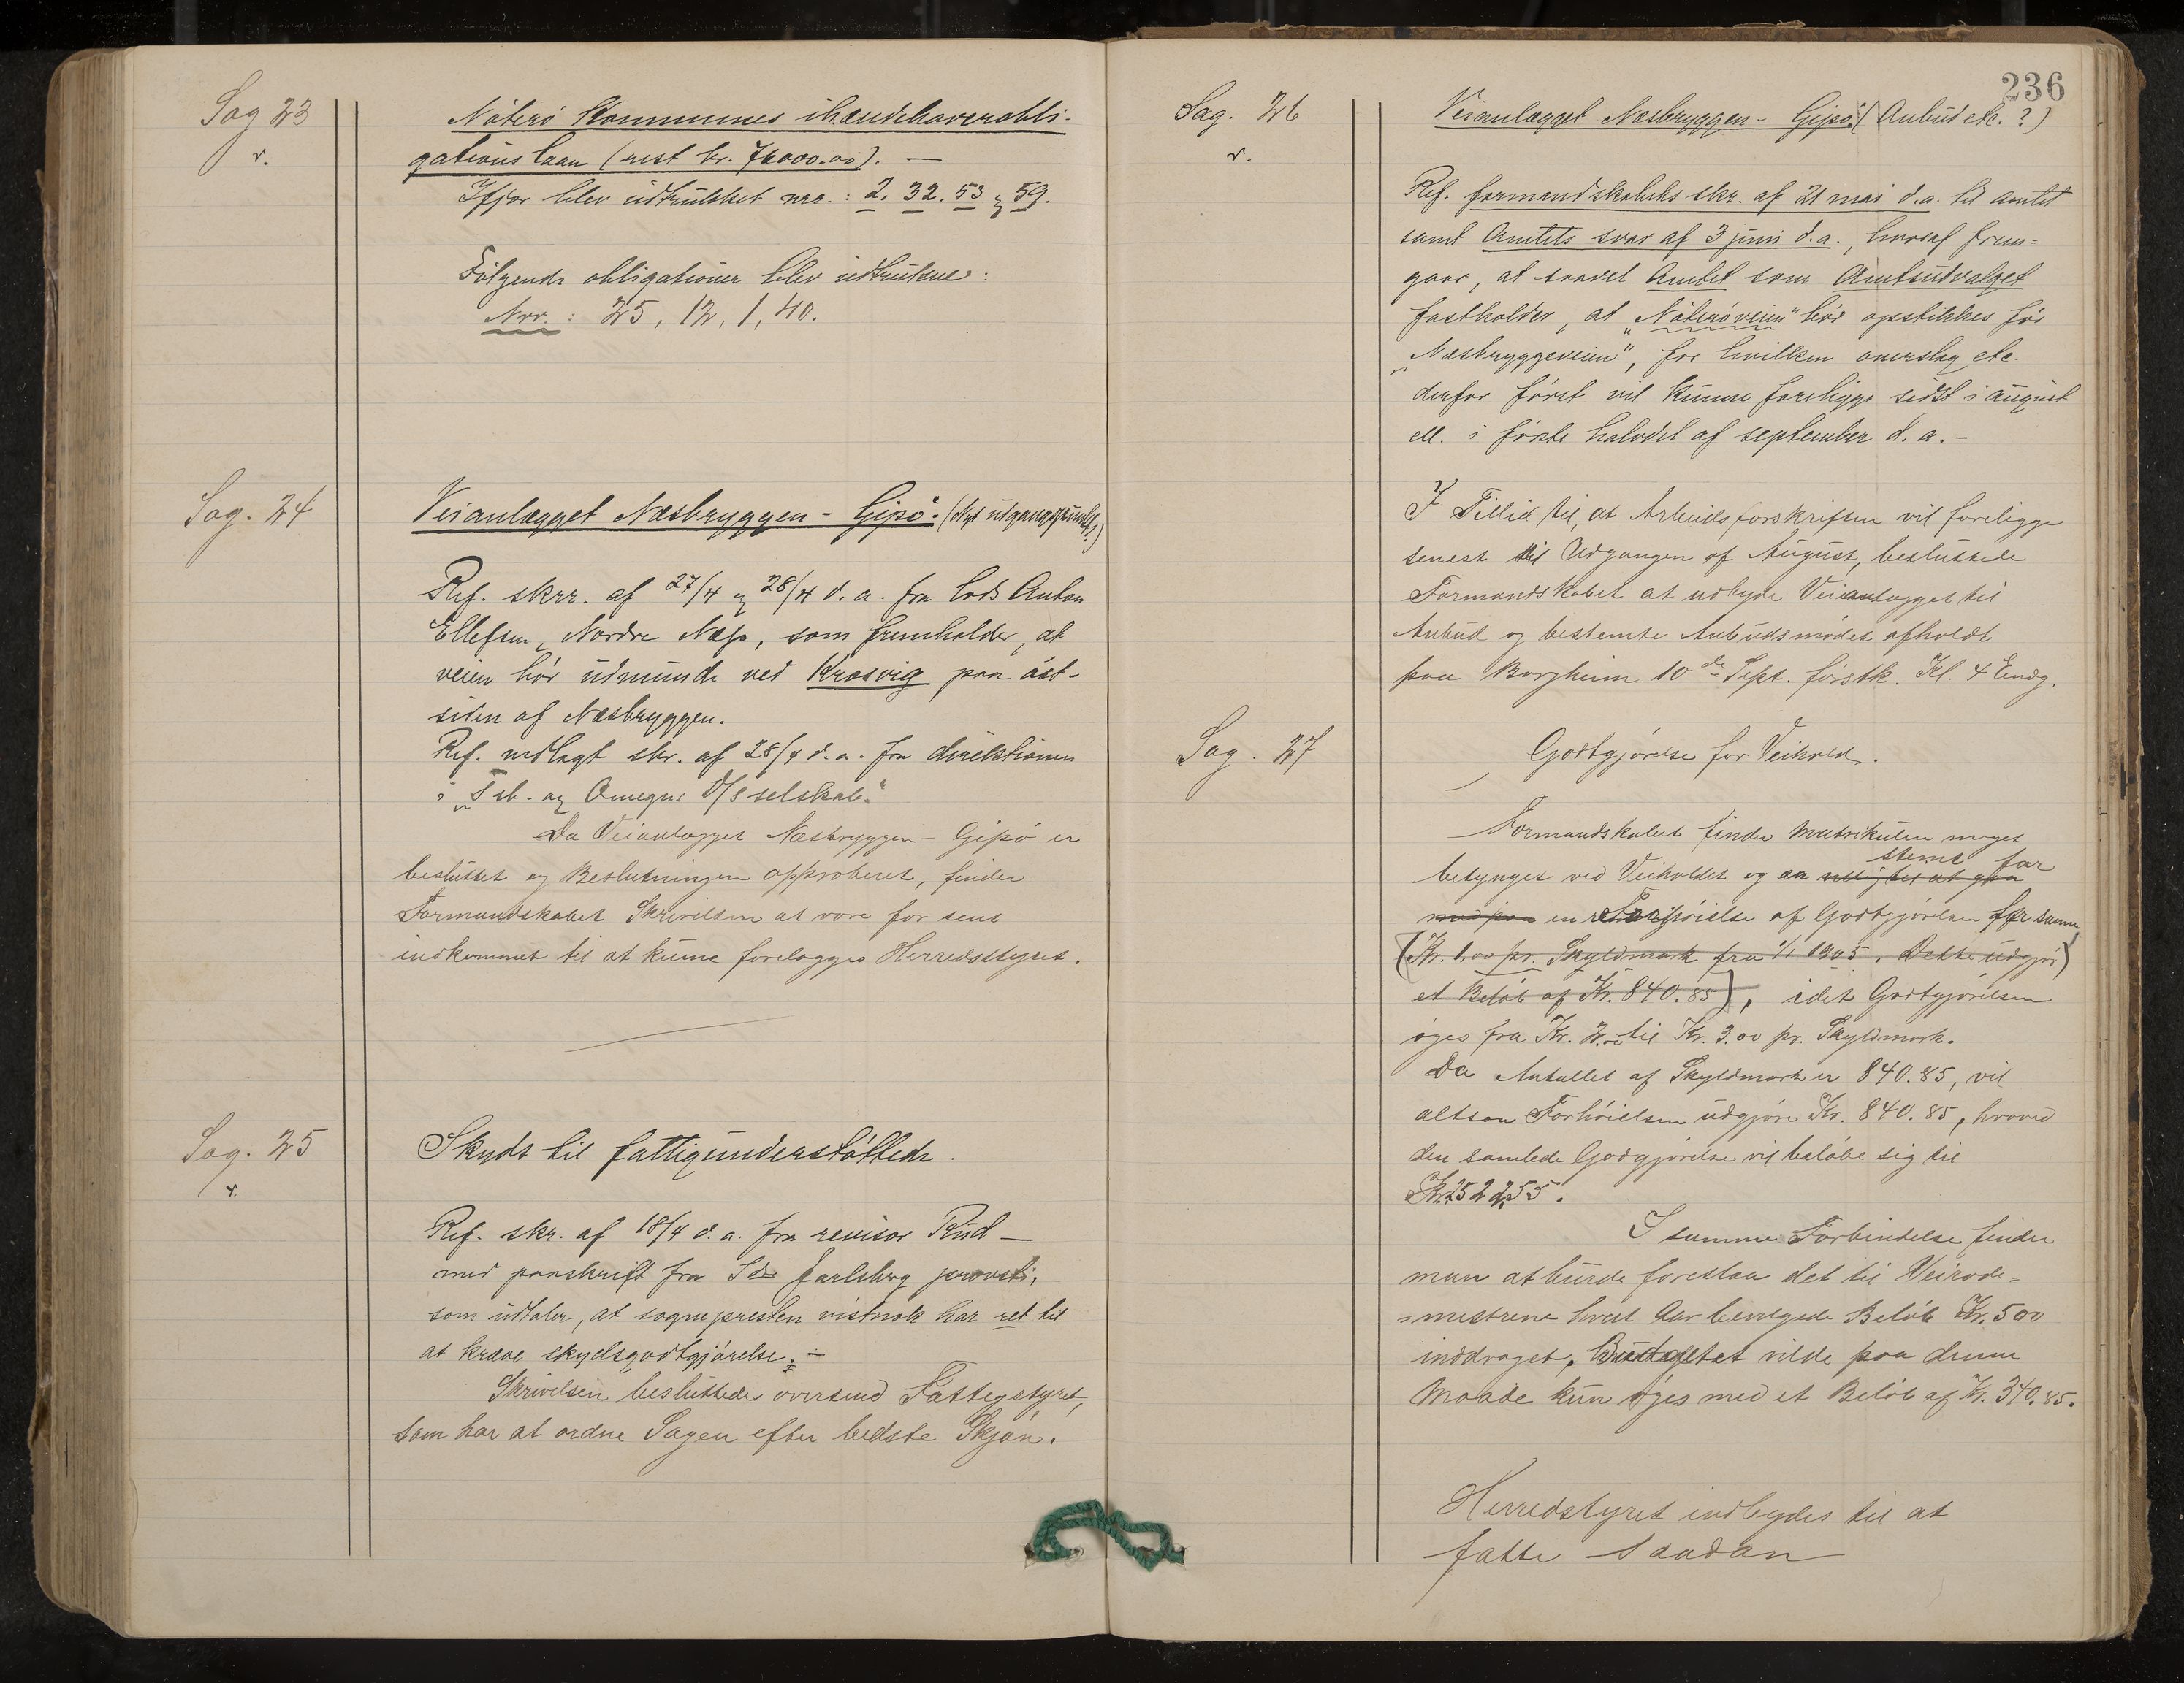 Sag 23
v.
Nøterø Kommunes ihændehaverobli-
gationslaan (rest kr. 76000.00). —
Ifjor blev udtrukket nrr.: 2. 32. 53 og 59.
Følgende obligationer blev udtrukne:
Nrr.: 25, 12, 1, 40.
Sag. 24
Veianlægget Næsbryggen - Gipø. (Nyt utgangspunkt?)
Ref. skrr. af 27/4 og 28/4 d. a. fra lods Anton
Ellefsen, Nordre Næss, som fremholder, at
veien bør udmunde ved Kræsvig paa øst-
siden af Næsbryggen.
Ref. vedlagt skr. af 28/4 d. a. fra direktionen
i „Tsb. og Omegns D/S selskab."
Da Veianlægget Næsbryggen - Gipø er
besluttet og Beslutningen approberet, finder
Formandskabet Skrivelsen at være for sent
indkommet til at kunne forelægges Herredsstyret.
Sag. 25
v.
Skyds til fattigunderstøttede.
Ref. skr. af 18/4 d. a. fra revisor Rud —
med paaskrift fra Sdr Jarlsberg provsti,
som udtaler, at sognepresten vistnok har ret til
at kræve skydsgodtgjørelse. —
Skrivelsen besluttedes oversend Fattigstyret,
som har at ordne Sagen efter bedste Skjøn.
236
Sag. 26
v.
Veianlægget Næsbryggen - Gipø. (Anbud etc. ?)
Ref. formandskabets skr. af 21 mai d. a. til amtet
samt Amtets svar af 3 juni d. a., hvoraf frem=
gaar, at saavel Amtet som Amtsudvalget
fastholder, at „Nøterøveien" bør opstikkes før
„Næsbryggeveien", for hvilken overslag etc.
derfor først vil kunne foreligge sidst i august
ell. i første halvdel af september d. a. —
I Tillid til, at Arbeidsforskriften vil foreligge
senest til Udgangen af August, besluttede
Formandskabet at udbyde Veianlægget til
Anbud og bestemte Anbudsmødet afholdt
paa Borgheim 10de Sept. førstk. Kl. 4 Emdg.
Sag. 27
Godtgjørelse for Veihold.
Formandskabet finder Matrikulen meget
betynget ved Veiholdet og er villig til at gaa
stemt for
med paa en Forhøielse af Godtgjørelsen for samme
(Kr. 1,00 pr. Skyldmark fra 1/1 1905. Dette udgjør
et Beløb af Kr. 840.85), idet Godtgjørelsen
øges fra Kr. 2.00 til Kr. 3.00 pr. Skyldmark.
Da Antallet af Skyldmark er 840.85, vil
altsaa Forhøielsen udgjøre Kr. 840.85, hvorved
den samlede Godgjørelse vil beløbe sig til
Kr. 2522,55.
I samme Forbindelse finder
man at burde foreslaa det til Veirode=
=mestrene hvert Aar bevilgede Beløb Kr. 500
inddraget. Budgettet vilde paa denne
Maade kun øges med et Beløb af Kr. 340.85.
Herredstyret indbydes til at
fatte saadan